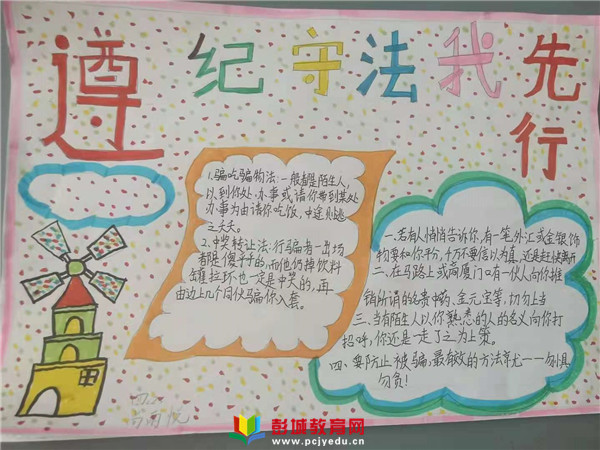 遵纪守法我先行
1.骗吃骗物法:一般都是陌生人,
以到你处办事或请你带到某处
办事为由请你吃饭,中途逃
之夭夭。
2.中奖转让法:行骗有一出场
都是傻乎乎的,而他仍掉饮料
罐拉环也一定是中奖的,再
由边上几个同伙骗你入套。
一.若有人悄悄告诉你,有一笔外汇或金银饰
物要和你平分,千万不要信以为真,还是赶快离开
二、在马路上或商厦门口有一伙人向你推
销所谓的名贵中药、金元宝等,切勿上当
三、当有陌生人以你熟悉的人的名义向你打
招呼,你还是一走了之为上策。
四、要防止被骗,最有效的方法就是——勿惧
勿贪!
彭城教育网
www.pcjyedu.cn